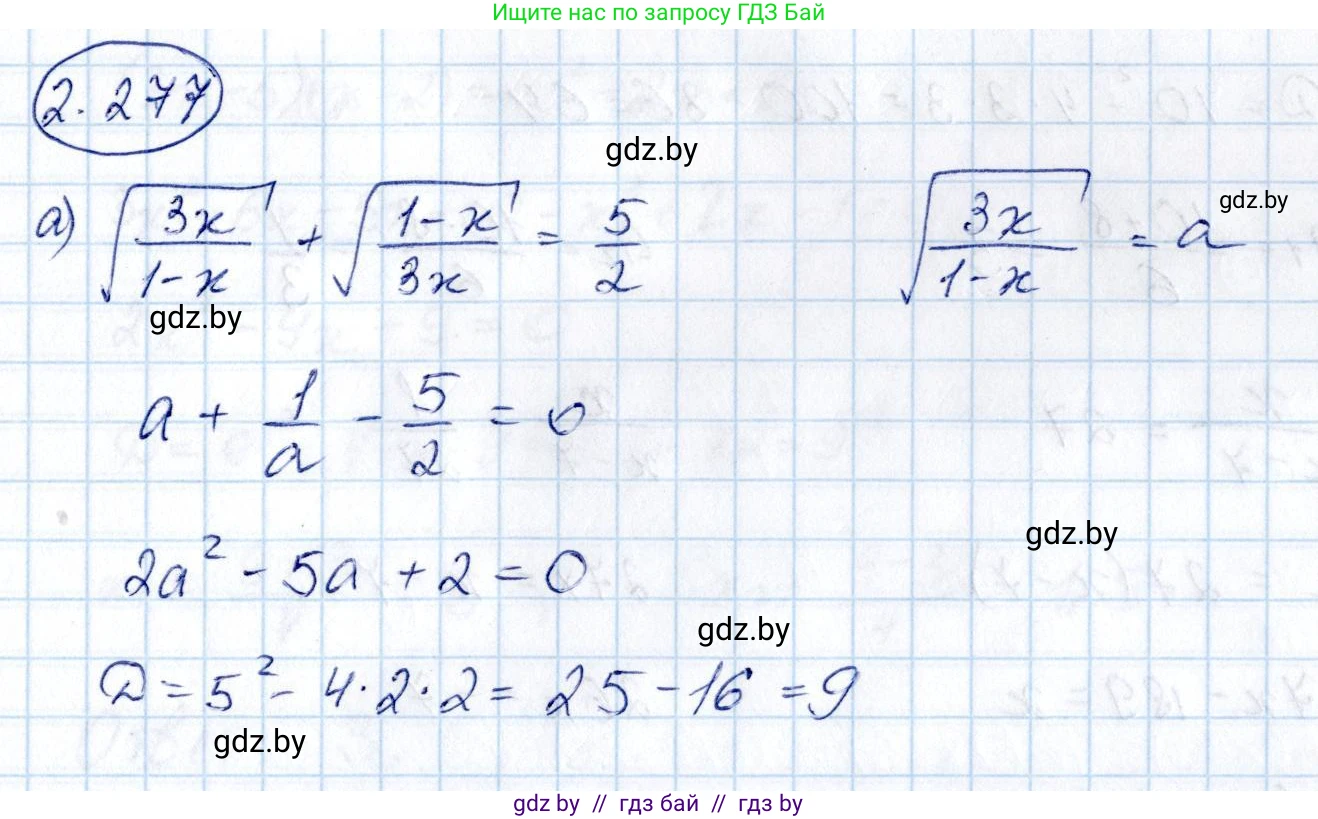 Ищите нас по запросу ГДЗ Бай
2.277
gdz.by
а) √(3x/(1-x)) + √((1-x)/(3x)) = 5/2 √(3x/(1-x)) = a
gdz.by
gdz.by
a + 1/a - 5/2 = 0
gdz.by
2a² - 5a + 2 = 0
gdz.by
D = 5² - 4·2·2 = 25 - 16 = 9
gdz.by
gdz by // гдз бай // gdz by